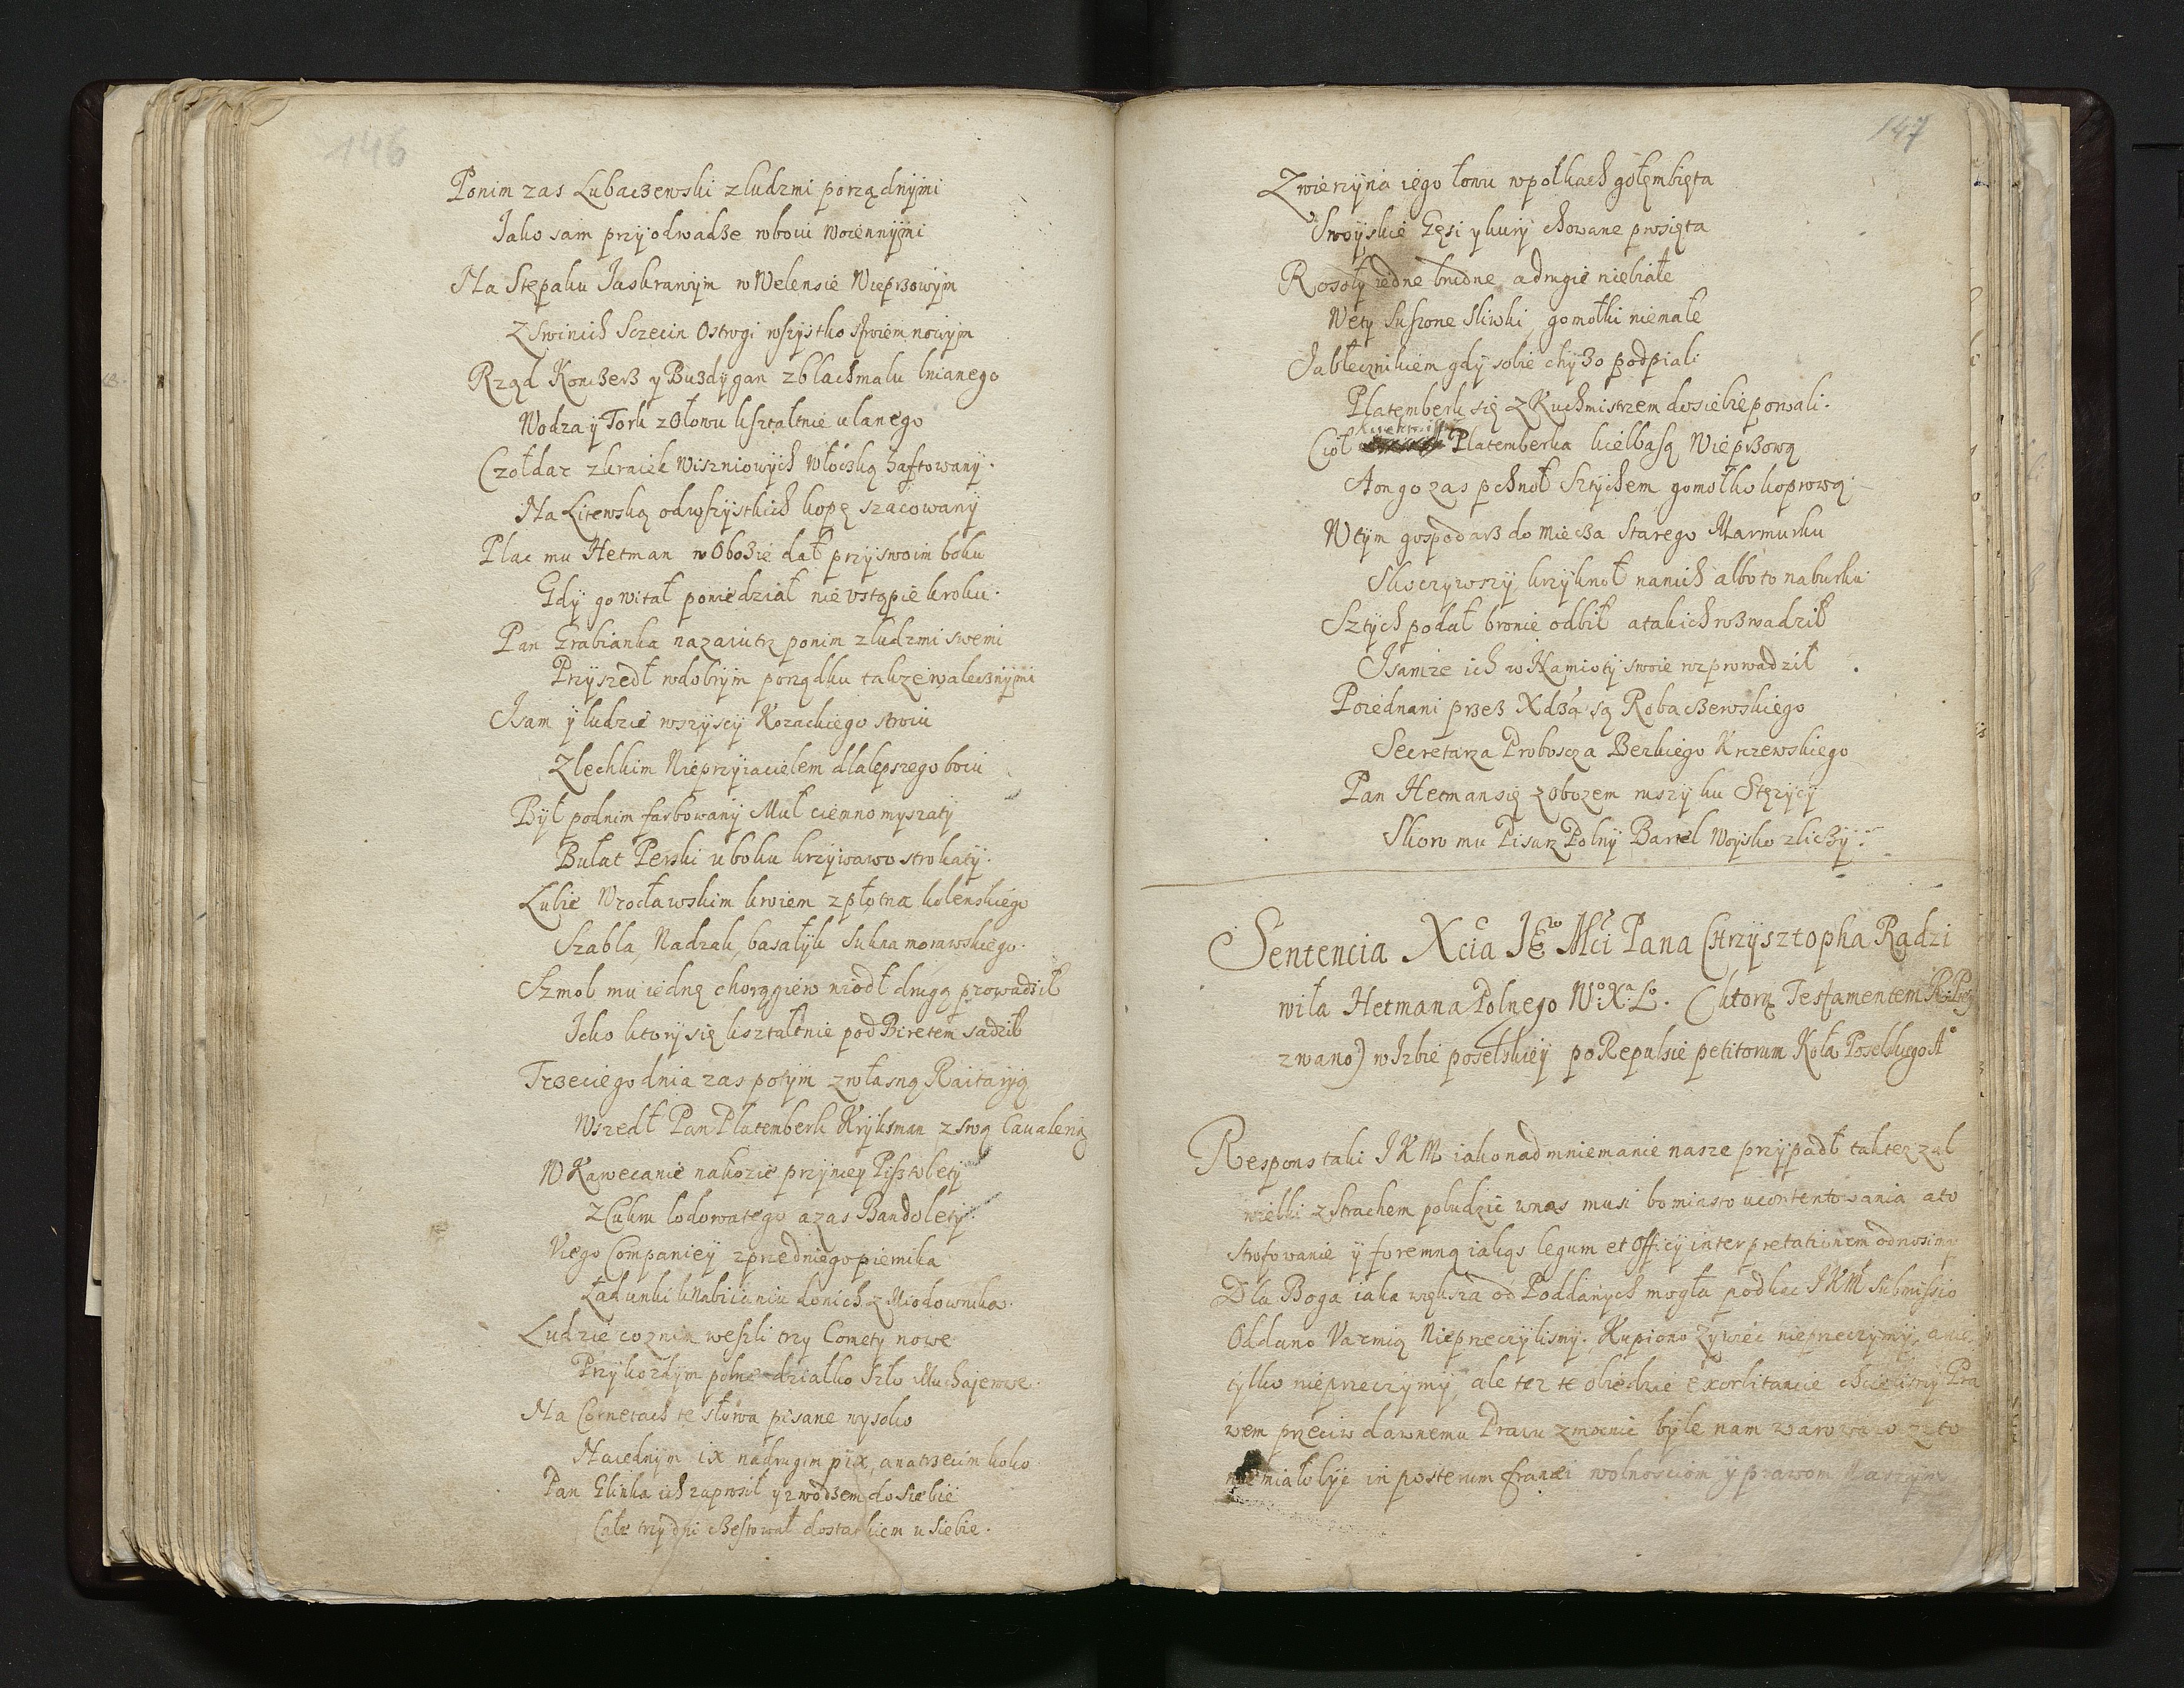 146
Ponim zas Lubaczewski zludzmi porządnymi
Jako sam przy odwadze wboiu woiennymi
Na Stępaku Jaskrawym w Welensie Wieprzowym
Z Swinich Sczecin Ostrogi wszystko stroiem nowym
Rząd Konczerz y Buzdygan zblachmalu lnianego
Wodza y Tork z Ołowu ksztaltnie ulanego
Czołdar zkraiek Wiszniowych włóczką haftowany.
Na Litewską odwszystkich kopę szacowany
Plac mu Hetman w Obozie dał przy swoim boku
Gdy go witał powiedział nie vstąpie kroku.
Pan Grabianka nazaiutrz ponim zludzmi swemi
Przyszedł wdobrym porządku takze walecznymi
Isam y ludzie wszyscy Kozackiego stroiu
Zlechkim Nieprzyiacielem dla lepszego boiu
Był podnim farbowany Muł ciemno myszaty
Bułat Perski u boku krzywawo strokaty.
Lubie Wrocławskim kroiem zpłotna kolenskiego
Szabla, Nadzak, basałyk Sukna morawskiego.
Szmol mu iednę chorągiew niodł drugą prowadził
Icko ktory się ksztaltnie pod Biretem sadził
Trzeciego dnia zas potym zwłasną Raitaryą
Wszedł Pan Platemberk Kryksman z swą Caualerią
W Kawecanie nakozie przyniey Pisztolety
Z Cukru lodowatego azas Bandolety.
Viego Companiey zprzedniego piernika
Ładunki knabiianiu donich z Miodownika.
Ludzie co znim weszli trzy Comety nowe
Przykozdym polne działko szło Muchajerowe.
Na Cornetach te słowa pisane wysoko
Naiednym ix nadrugim pix, anatrzecim koko
Pan Glinka ich zaprosił y zwodzem do siebie
Całe trzy dni czestował dostatkiem u siebie.
147
Zwierzyna iego łowu wpołkach gołembięta
Swoyskie Gęsi y kury chowane prosięta
Rosoły iedne brudne adrugie niebiałe
Wety Suszone Sliwki, gomołki niemałe
Jabłecznikiem gdy sobie chyzo podpiali
Platemberk się z Kuchmistrzem dosiebie porwali.
Ciął Platemberka kiełbasą Wieprzową
Aon go zas pchnoł Sztychem gomołko koprową.
Wtym gospodarz do miecza Starego Marmurku
Skoczywszy krzyknoł nanich albo to naburku
Sztych podał bronie odbił atakich rozwadził
Isamze ich w Namioty swoie wzprowadził
Poiednani przez Xdza są Robaczewskiego
Secretarza Proboscza Berkiego Krzewskiego
Pan Hetman się zobozem ruszy ku Stęzycy
Skoro mu Pisarz Polny Bartel Woysko zliczy.
Sentencia Xcia Jego Mci Pana Chrzysztopha Radzi
wiła Hetmana Polnego W: X: L. (ktorą Testamentem R: P:
zwano) w Izbie poselskiey po Repulsie petitorum Koła Poselskiego A°
Respons taki J K M iako nad mniemanie nasze przypadł taktez zal
wielki z strachem pobudzic wnas musi bo miasto ucontentowania ato
strofowanie y foremną iakąs legum et Officy interpretationem odnosimy
Dla Boga iaka większa od Poddanych mogła podkac J K M Submissio
Oddano Varmią Nieprzeczylismy. Kupiono Zywiec nieprzeczymy,
tylko nieprzeczymy, ale tez te obiedwie exorbitancie chcielismy Pra
wem przeciw dawnemu Prawu zmocnic byle nam warowano ze to
nie miało byc in posterum fraudi wolnosciom y prawom Naszym